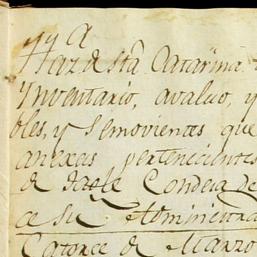 y y A
Haz.da S.ta Catarina
Ynventario, avaluo, y
bles, y Semovientes que
anexas pertenecientes
de Conde de
ce su Administra
Catorce de Marzo